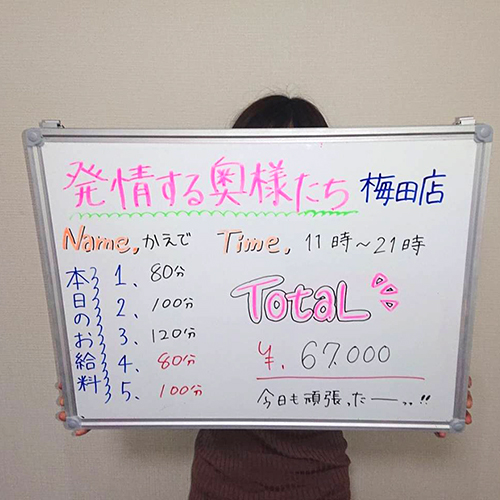 発情する奥様たち 梅田店
Name, かえで Time, 11時～21時
本日のお給料
1、80分
2、100分
3、120分
4、80分
5、100分
TotaL
¥、67,000
今日も頑張った——、、!!